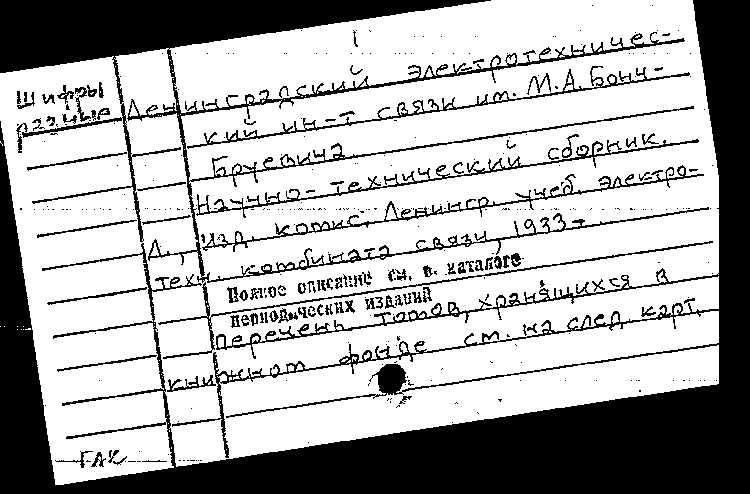 1
Шифры
разные
Ленинградский электротехничес-
кий ин-т связи им. М.А. Бонч-
Бруевича
Научно-технический сборник.
Л., Изд. комис. Ленингр. учеб. электро-
техн. комбината связи, 1933-
Полное описание см. в каталоге
периодических изданий
Перечень томов, хранящихся в
книжном фонде см. на след карт.
ГАК